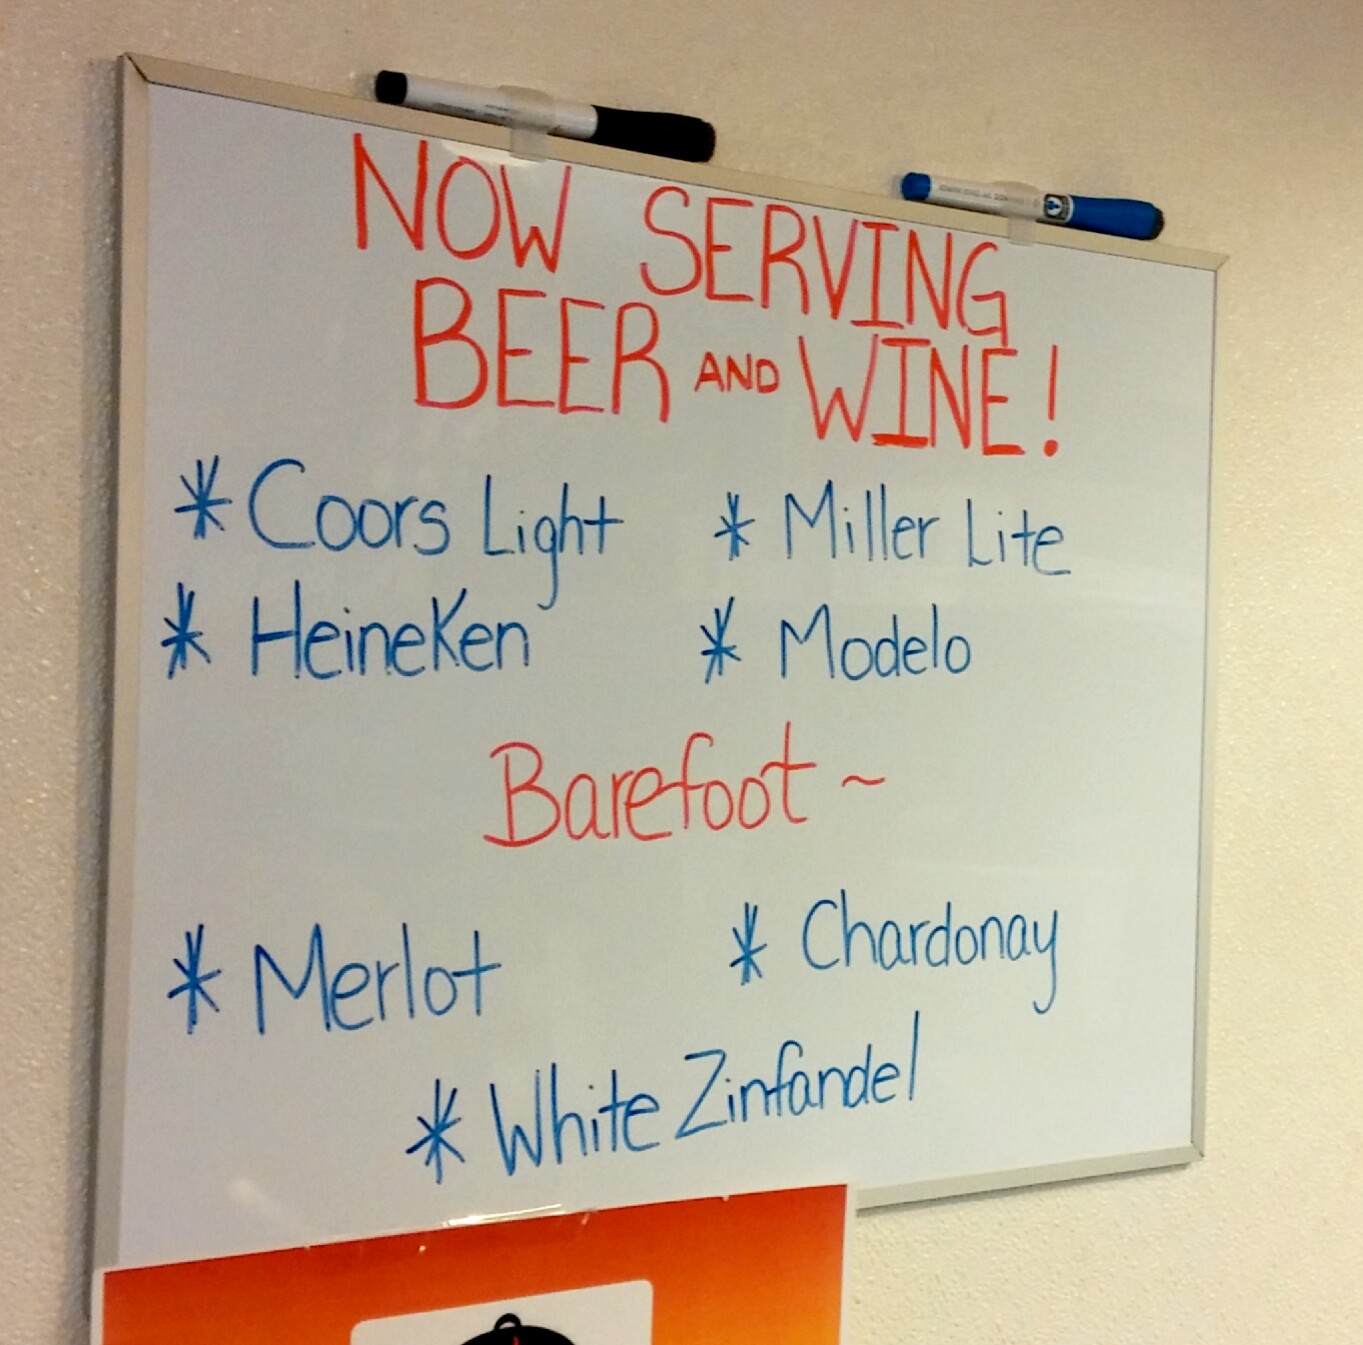 NOW SERVING
BEER AND WINE!
* Coors Light * Miller Lite
* HeineKen * Modelo
Barefoot ~
* Merlot * Chardonay
* White Zinfandel